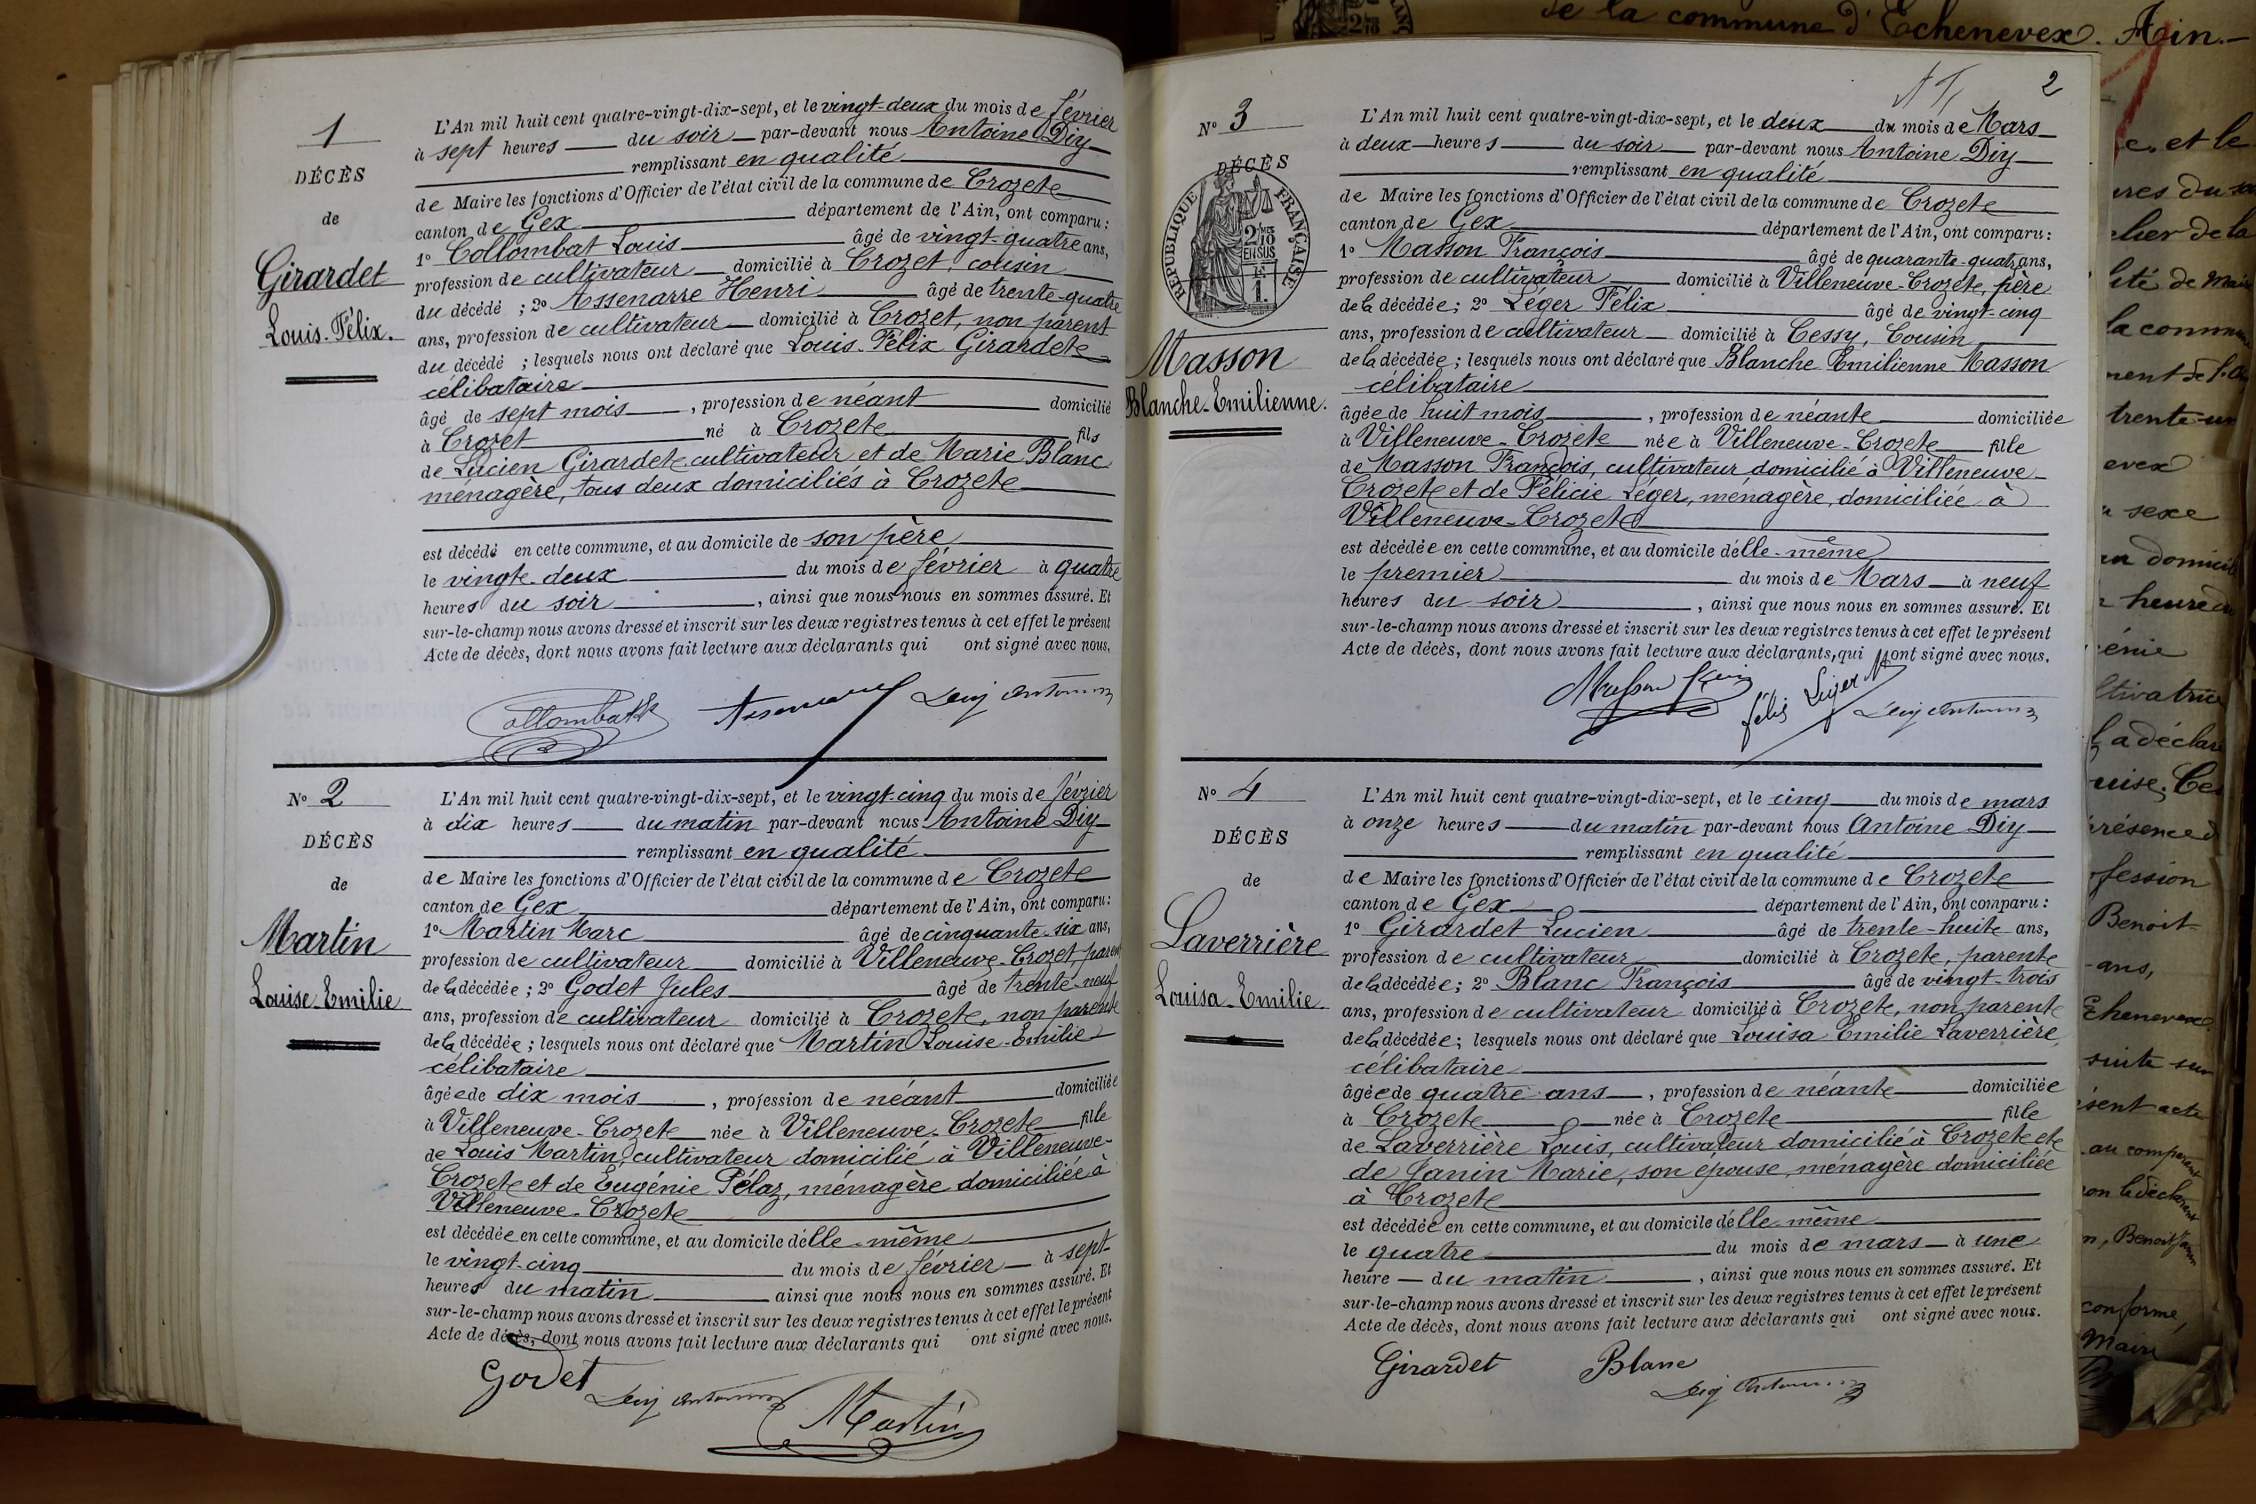 de la commune d'Echenevex. Ain.—
1
DÉCÈS
de
Girardet
Louis-Félix.
L'An mil huit cent quatre-vingt-dix-sept, et le vingt-deux du mois de février
à sept heures du soir par-devant nous Antoine Diy
remplissant en qualité
de Maire les fonctions d'Officier de l'état civil de la commune de Crozete
canton de Gex département de l'Ain, ont comparu :
1º Collombat Louis âgé de vingt-quatre ans,
profession de cultivateur domicilié à Crozet, cousin
du décédé ; 2º Assenarre Henri âgé de trente-quatre
ans, profession de cultivateur domicilié à Crozet, non parent
du décédé ; lesquels nous ont déclaré que Louis-Félix Girardete
célibataire
âgé de sept mois, profession de néant domicilié
à Crozet né à Crozete fils
de Lucien Girardete cultivateur et de Marie Blanc
ménagère, tous deux domiciliés à Crozete
est décédé en cette commune, et au domicile de son père
le vingte-deux du mois de février à quatre
heures du soir, ainsi que nous nous en sommes assuré. Et
sur-le-champ nous avons dressé et inscrit sur les deux registres tenus à cet effet le présent
Acte de décès, dont nous avons fait lecture aux déclarants qui ont signé avec nous.
Collombat
Nº 2
DÉCÈS
de
Martin
Louise-Emilie
L'An mil huit cent quatre-vingt-dix-sept, et le vingt-cinq du mois de février
à dix heures du matin par-devant nous Antoine Diy
remplissant en qualité
de Maire les fonctions d'Officier de l'état civil de la commune de Crozete
canton de Gex département de l'Ain, ont comparu :
1º Martin Marc âgé de cinquante-six ans,
profession de cultivateur domicilié à Villeneuve-Crozet, parent
de la décédée ; 2º Godet Jules âgé de trente-neuf
ans, profession de cultivateur domicilié à Crozete, non parente
de la décédée ; lesquels nous ont déclaré que Martin Louise-Emilie
célibataire
âgée de dix mois, profession de néant domiciliée
à Villeneuve-Crozete née à Villeneuve-Crozete fille
de Louis Martin, cultivateur domicilié à Villeneuve-
Crozete et de Eugénie Pélaz, ménagère domiciliée à
Villeneuve-Crozete
est décédée en cette commune, et au domicile délle-même
le vingt-cinq du mois de février à sept
heures du matin ainsi que nous nous en sommes assuré. Et
sur-le-champ nous avons dressé et inscrit sur les deux registres tenus à cet effet le présent
Acte de décès, dont nous avons fait lecture aux déclarants qui ont signé avec nous.
Godet
Martin
2
Nº 3
DÉCÈS
RÉPUBLIQUE FRANÇAISE
Masson
Blanche-Emilienne.
L'An mil huit cent quatre-vingt-dix-sept, et le deux du mois de Mars
à deux heures du soir par-devant nous Antoine Diy
remplissant en qualité
de Maire les fonctions d'Officier de l'état civil de la commune de Crozete
canton de Gex département de l'Ain, ont comparu :
1º Masson François âgé de quarante-quatre ans,
profession de cultivateur domicilié à Villeneuve-Crozete, père
de la décédée ; 2º Léger Félix âgé de vingt-cinq
ans, profession de cultivateur domicilié à Cessy, Cousin
de la décédée ; lesquels nous ont déclaré que Blanche Emilienne Masson
célibataire
âgée de huit mois, profession de néante domiciliée
à Villeneuve-Crozete née à Villeneuve-Crozete fille
de Masson François, cultivateur domicilié à Villeneuve-
Crozete et de Félicie Léger, ménagère, domiciliée à
Villeneuve-Crozete
est décédée en cette commune, et au domicile délle-même
le premier du mois de Mars à neuf
heures du soir, ainsi que nous nous en sommes assuré. Et
sur-le-champ nous avons dressé et inscrit sur les deux registres tenus à cet effet le présent
Acte de décès, dont nous avons fait lecture aux déclarants, qui ont signé avec nous.
félix Léger
Nº 4
DÉCÈS
de
Laverrière
Louisa-Emilie
L'An mil huit cent quatre-vingt-dix-sept, et le cinq du mois de mars
à onze heures du matin par-devant nous Antoine Diy
remplissant en qualité
de Maire les fonctions d'Officier de l'état civil de la commune de Crozete
canton de Gex département de l'Ain, ont comparu :
1º Girardet Lucien âgé de trente-huite ans,
profession de cultivateur domicilié à Crozete, parente
de la décédée ; 2º Blanc François âgé de vingt-trois
ans, profession de cultivateur domicilié à Crozete, non parente
de la décédée ; lesquels nous ont déclaré que Louisa Emilie Laverrière
célibataire
âgée de quatre ans, profession de néante domiciliée
à Crozete née à Crozete fille
de Laverrière Louis, cultivateur domicilié à Crozete ete
de Janin Marie, son épouse, ménagère domiciliée
à Crozete
est décédée en cette commune, et au domicile délle-même
le quatre du mois de mars à une
heure du matin, ainsi que nous nous en sommes assuré. Et
sur-le-champ nous avons dressé et inscrit sur les deux registres tenus à cet effet le présent
Acte de décès, dont nous avons fait lecture aux déclarants qui ont signé avec nous.
Girardet Blanc
et le
de la
la commune
trente-un
sexe
domicile
heure du
a déclaré
profession
Benoit
ans,
Echenevex
suite sur
acte
au comparant
Benoit
conforme,
Maire